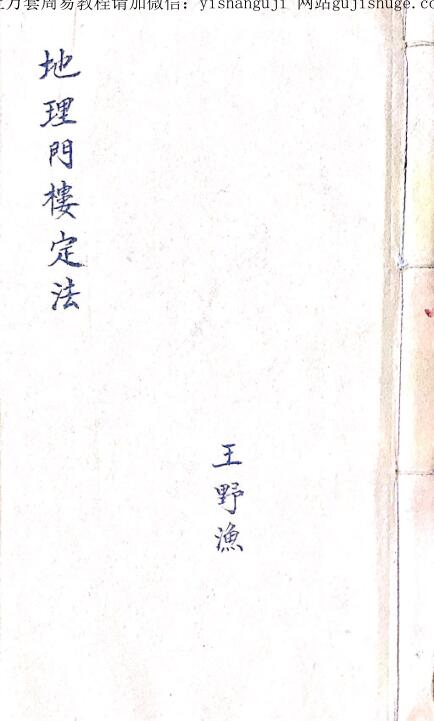 万套周易教程请加微信：yishanguji 网站gujishuge.com
地理門樓定法
王野漁